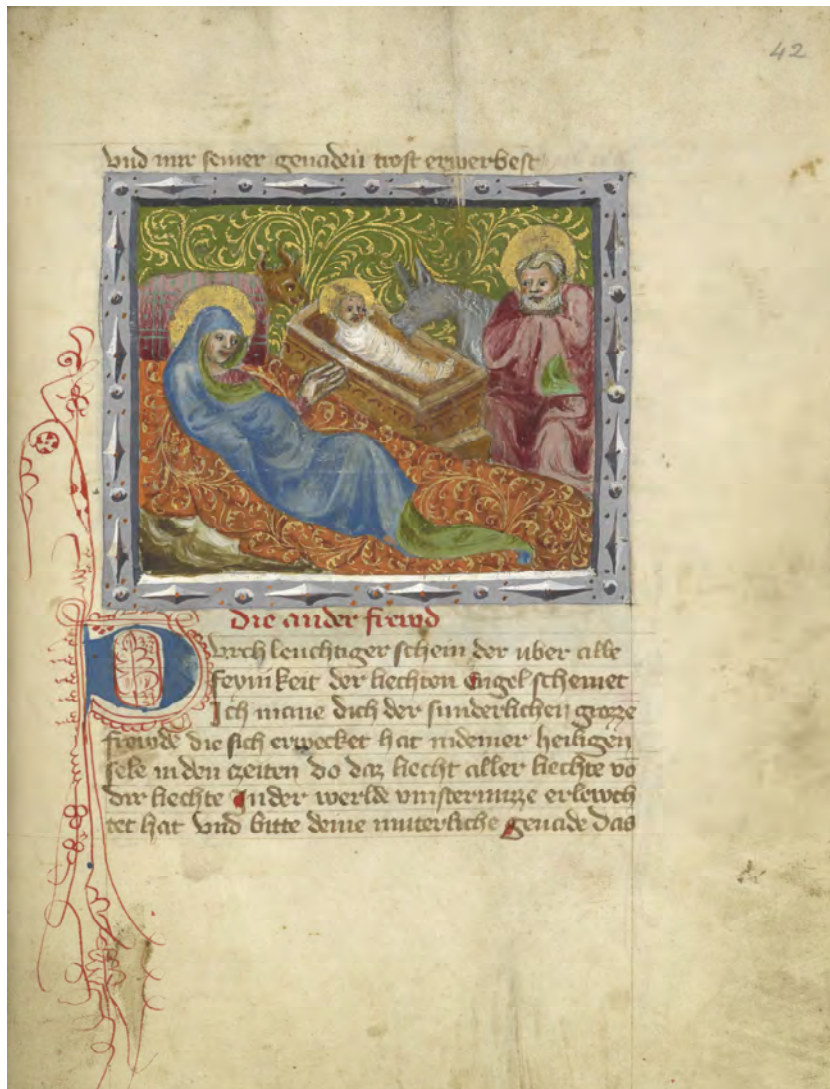 42
vnd mir seiner genaden trost erwerbest
die ander frewd
Durchleuchtiger schein der vber alle
feyni keit der liechten Engel scheinet
Ich mane dich der sunderlichen grozze
frewde die sich erwecket hat in deiner heiligen
sele in den czeiten do daz liecht aller liechte vo
dir liechte In der werlde vinsternuzze erlewch
tet hat vnd bitte deine muterliche genade das